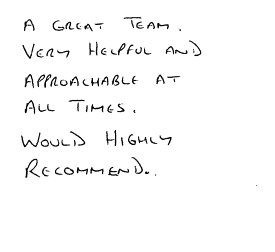 A GREAT TEAM.
VERY HELPFUL AND
APPROACHABLE AT
ALL TIMES.
WOULD HIGHLY
RECOMMEND..